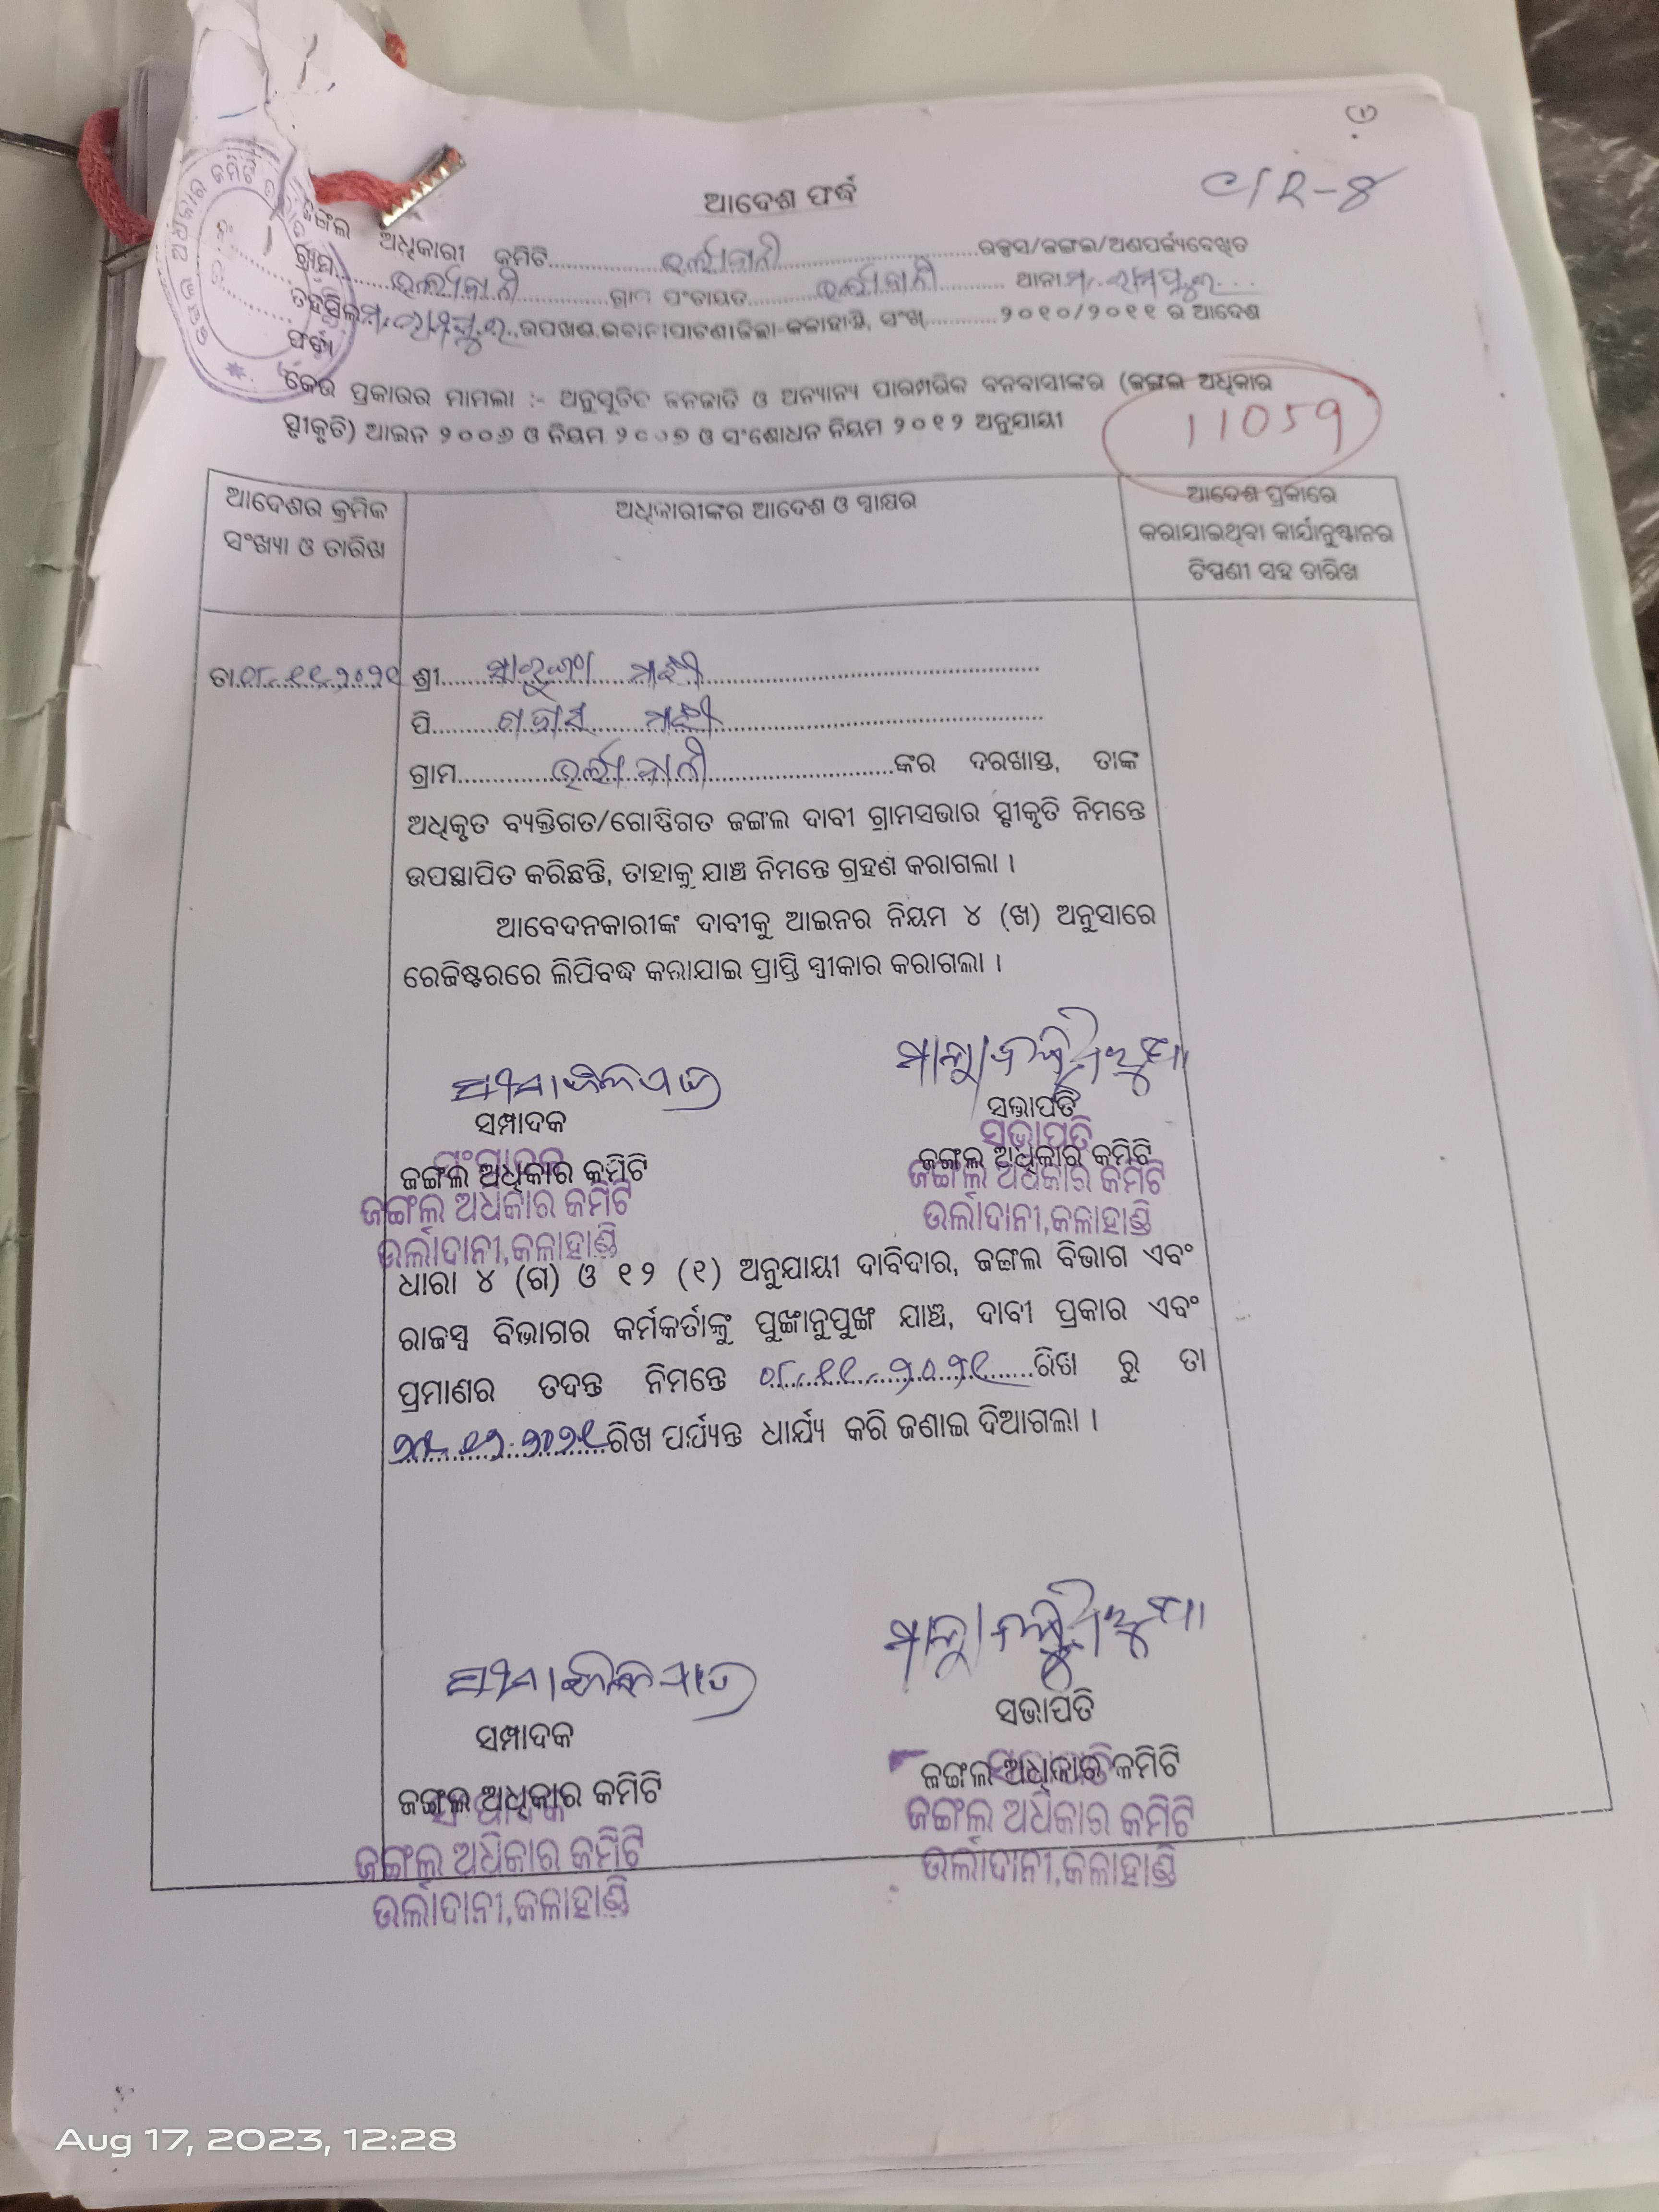 ୧
C/R-8
ଆଦେଶ ଫର୍ଦ୍ଦ
ଜଙ୍ଗଲ ଅଧିକାରୀ କମିଟି.....ଉର୍ଲାଦାନୀ.....ଜଙ୍ଗଲ/
ଗ୍ରାମ.....ଉର୍ଲାଦାନୀ.....ଗ୍ରାମ ପଂଚାୟତ.....ଉର୍ଲାଦାନୀ..... ଥାନା ମ.ରାମପୁର...
ତହସିଲ ମ.ରାମପୁର..ଉପଖଣ୍ଡ.ଭବାନୀପାଟଣା ଜିଲ୍ଲା-କଳାହାଣ୍ଡି, ସଂଖ୍.....୨୦୧୦/୨୦୧୧ ର ଆଦେଶ
ଫର୍ଦ୍ଦ।
କେଉ ପ୍ରକାରର ମାମଲା :- ଅନୁସୂଚିତ ଜନଜାତି ଓ ଅନ୍ୟାନ୍ୟ ପାରମ୍ପରିକ ବନବାସୀଙ୍କର (ଜଙ୍ଗଲ ଅଧିକାର
ସ୍ବୀକୃତି) ଆଇନ ୨୦୦୬ ଓ ନିୟମ ୨୦୦୭ ଓ ସଂଶୋଧନ ନିୟମ ୨୦୧୨ ଅନୁଯାୟୀ
11059
ଆଦେଶର କ୍ରମିକ
ସଂଖ୍ୟା ଓ ତାରିଖ
ଅଧିକାରୀଙ୍କର ଆଦେଶ ଓ ସ୍ୱାକ୍ଷର
ଆଦେଶ ପ୍ରକାରେ
କରାଯାଇଥିବା କାର୍ଯାନୁଷ୍ଠାନର
ଟିପ୍ପଣୀ ସହ ତାରିଖ
ତା.୦୮.୧୧.୨୦୨୧ ଶ୍ରୀ..... ମାଝୀ.....
ପି..... ମାଝୀ.....
ଗ୍ରାମ.....ଉର୍ଲାଦାନୀ.....ଙ୍କର ଦରଖାସ୍ତ, ତାଙ୍କ
ଅଧିକୃତ ବ୍ୟକ୍ତିଗତ/ଗୋଷ୍ଠିଗତ ଜଙ୍ଗଲ ଦାବୀ ଗ୍ରାମସଭାର ସ୍ୱୀକୃତି ନିମନ୍ତେ
ଉପସ୍ଥାପିତ କରିଛନ୍ତି, ତାହାକୁ ଯାଞ୍ଚ ନିମନ୍ତେ ଗ୍ରହଣ କରାଗଲା ।
ଆବେଦନକାରୀଙ୍କ ଦାବୀକୁ ଆଇନର ନିୟମ ୪ (ଖ) ଅନୁସାରେ
ରେଜିଷ୍ଟରରେ ଲିପିବଦ୍ଧ କରାଯାଇ ପ୍ରାପ୍ତି ସ୍ୱୀକାର କରାଗଲା ।
ସମ୍ପାଦକ
ସଭାପତି
ସଂପାଦକ
ସଭାପତି
ଜଙ୍ଗଲ ଅଧିକାର କମିଟି
ଜଙ୍ଗଲ ଅଧିକାର କମିଟି
ଜଙ୍ଗଲ ଅଧିକାର କମିଟି
ଜଙ୍ଗଲ ଅଧିକାର କମିଟି
ଉର୍ଲାଦାନୀ,କଳାହାଣ୍ଡି
ଉର୍ଲାଦାନୀ,କଳାହାଣ୍ଡି
ଧାରା ୪ (ଗ) ଓ ୧୨ (୧) ଅନୁଯାୟୀ ଦାବିଦାର, ଜଙ୍ଗଲ ବିଭାଗ ଏବଂ
ରାଜସ୍ୱ ବିଭାଗର କର୍ମକର୍ତାଙ୍କୁ ପୁଙ୍ଖାନୁପୁଙ୍ଖ ଯାଞ୍ଚ, ଦାବୀ ପ୍ରକାର ଏବଂ
ପ୍ରମାଣର ତଦନ୍ତ ନିମନ୍ତେ ୦୮.୧୧.୨୦୨୧.....ରିଖ ରୁ ତା
.....ରିଖ ପର୍ଯ୍ୟନ୍ତ ଧାର୍ଯ୍ୟ କରି ଜଣାଇ ଦିଆଗଲା ।
ସମ୍ପାଦକ
ସଭାପତି
ଜଙ୍ଗଲ ଅଧିକାର କମିଟି
ଜଙ୍ଗଲ ଅଧିକାର କମିଟି
ସଂପାଦକ
ସଭାପତି
ଜଙ୍ଗଲ ଅଧିକାର କମିଟି
ଜଙ୍ଗଲ ଅଧିକାର କମିଟି
ଉର୍ଲାଦାନୀ,କଳାହାଣ୍ଡି
ଉର୍ଲାଦାନୀ,କଳାହାଣ୍ଡି
Aug 17, 2023, 12:28